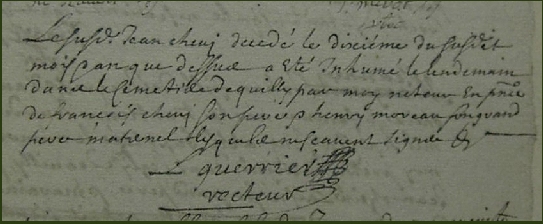 Le susd. Jean cheny decedé le dixiéme du susdit
mois & an que dessus a été Inhumé le lendemain
dans le Cemetiére de quilly par moy recteur En pnce
de francois cheny son pere & henry moreau son grand
pére maternel lesquels ne scavent signer &
guerrier
recteur